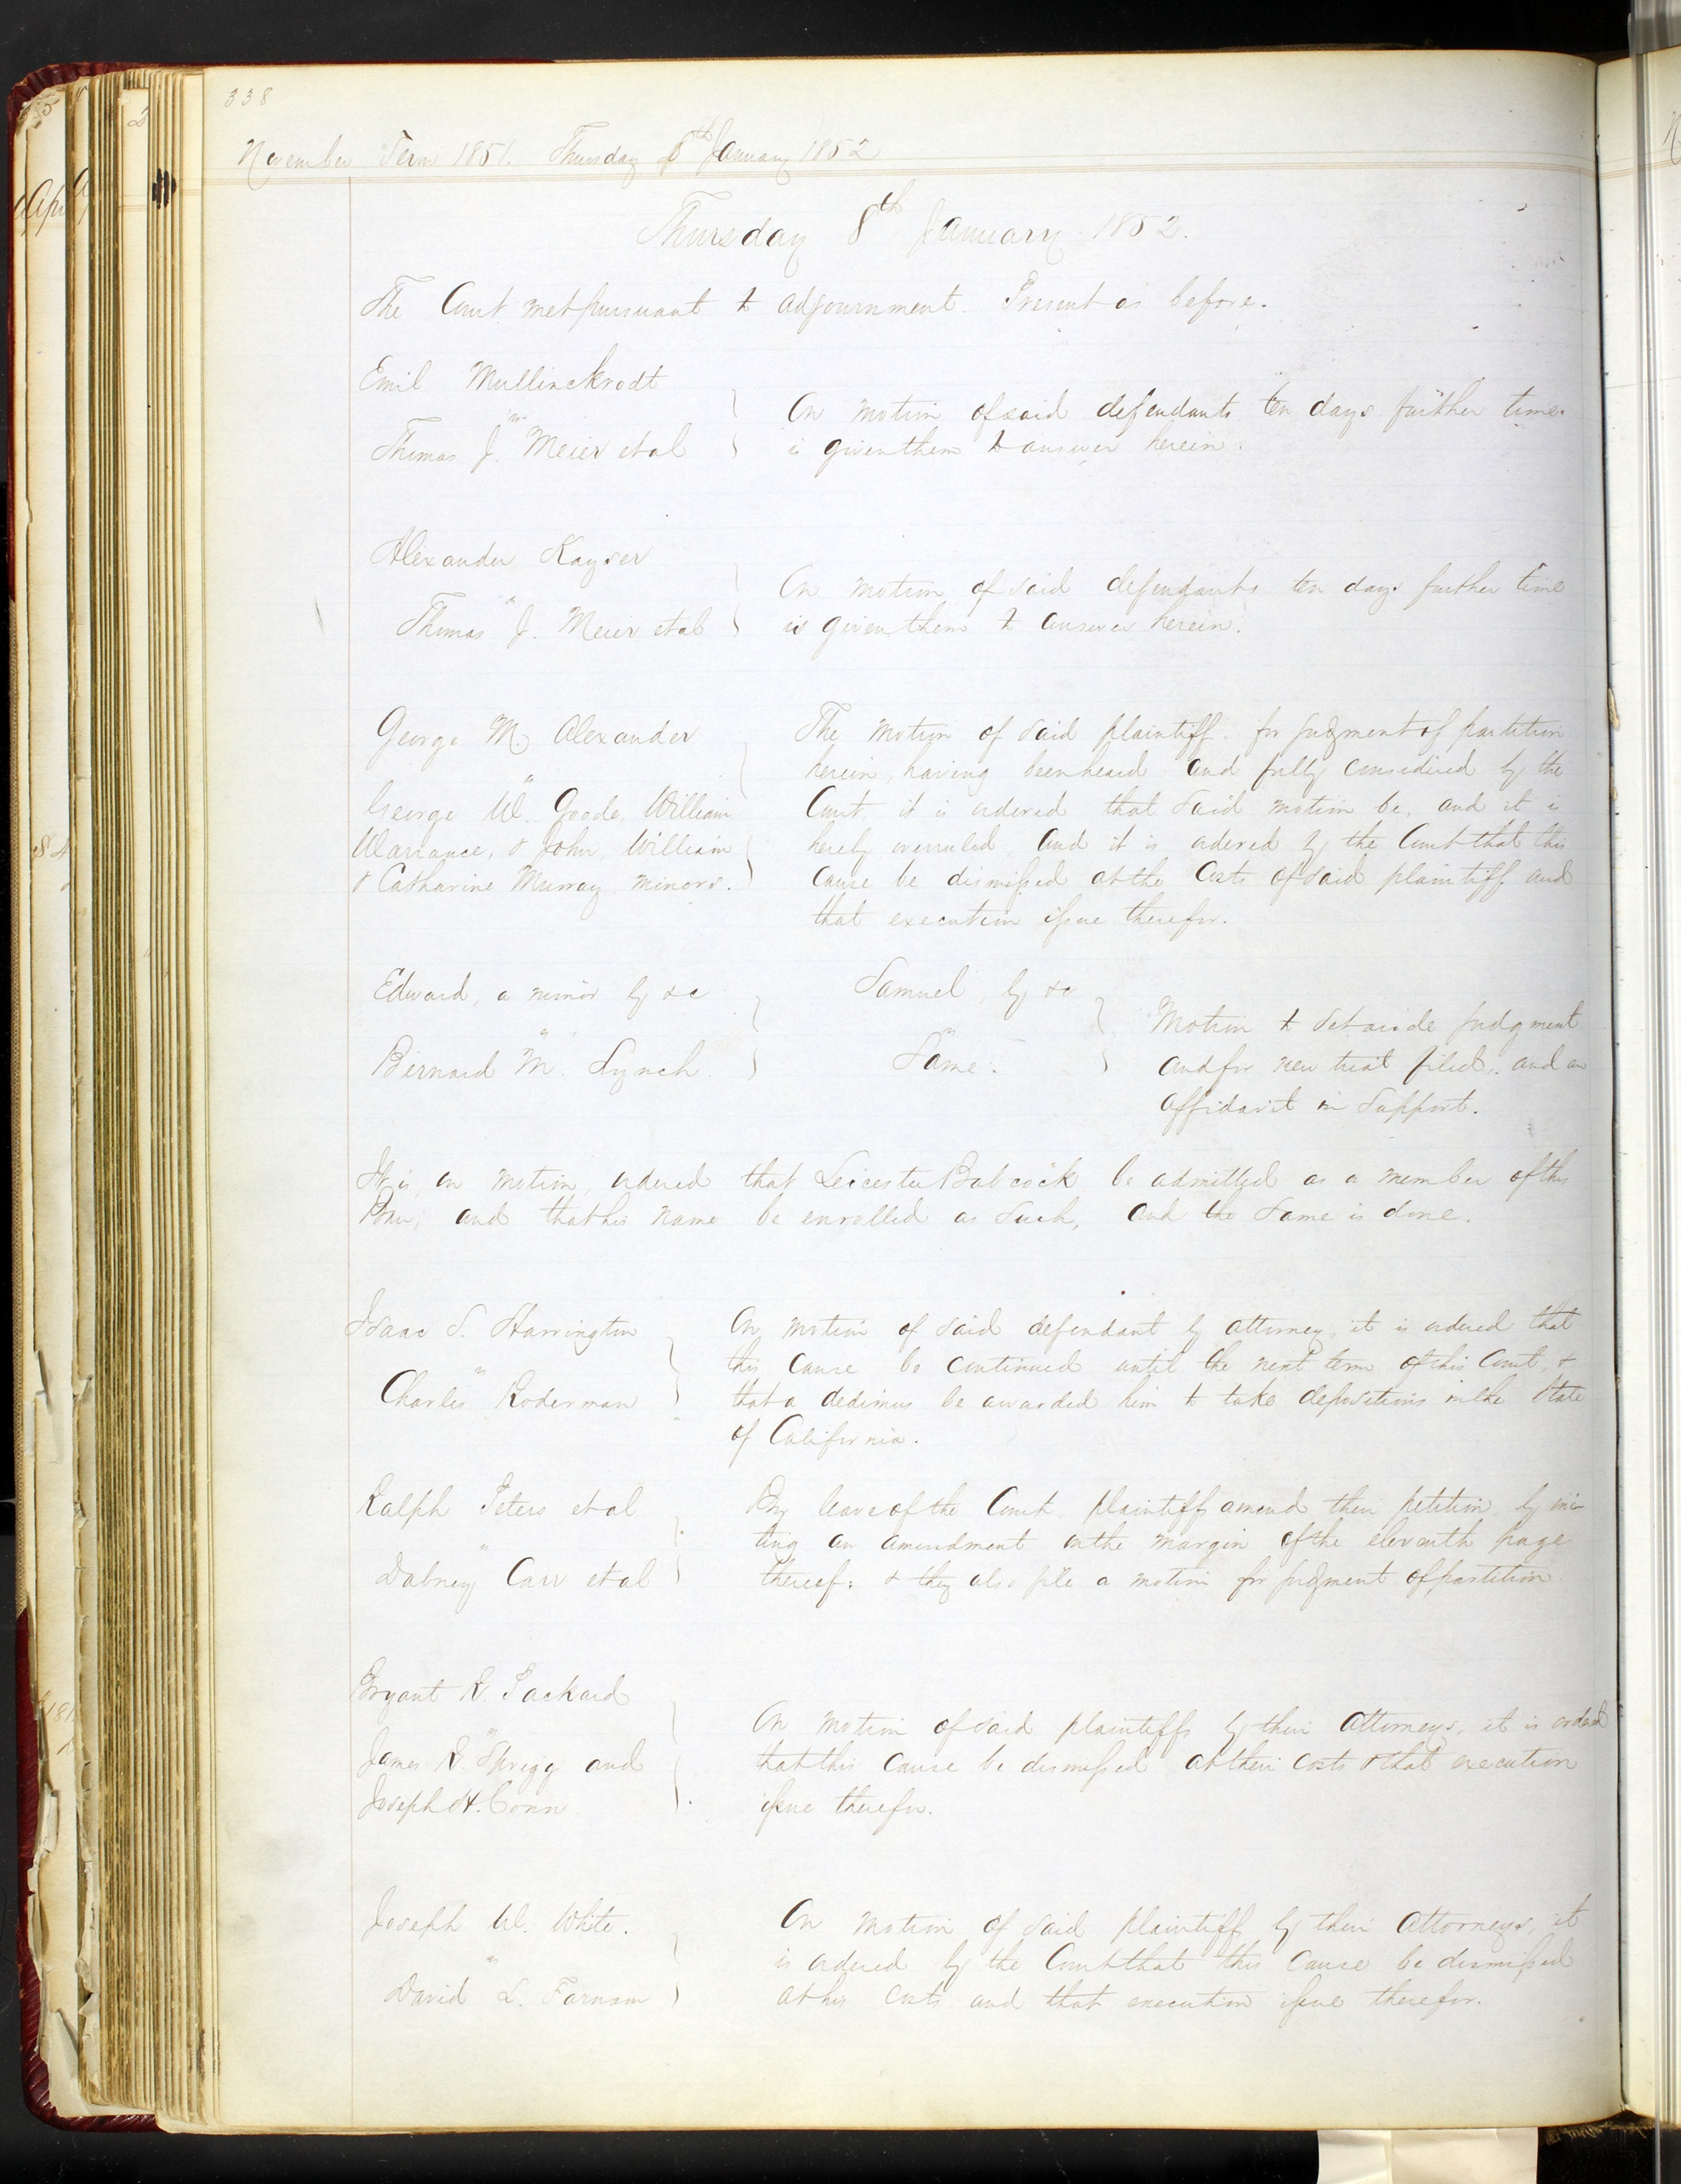 338
November Term 1851. Thursday 8th January 1852
Thursday 8th January 1852.
The Court met pursuant to adjournment. Present as before.
Emil Mullinckrodt
vs
Thomas J. Meier et al
On motion of said defendants ten days further time
is given them to answer herein.
Alexander Kayser
"
Thomas J. Meier et al
On motion of said defendants ten days further time
is given them to answer herein.
George M. Alexander
"
George W. Goode, William
Warrance, & John, William
& Catharine Murray, minors.
The motion of said plaintiff for judgment of partition
herein, having been heard and fully considered by the
Court, it is ordered that said motion be, and it is
hereby overruled, and it is ordered by the Court that this
cause be dismissed at the costs of said plaintiff, and
that execution issue therefor.
Edward, a minor by &c
vs
Bernard M. Lynch.
Samuel, by &c
vs
Same.
Motion to set aside judgment
and for new trial filed, and an
affidavit in support.
It is, on motion, ordered that Leicester Babcock, be admitted as a member of this
Bar, and that his name be enrolled as such, and the same is done.
Isaac S. Harrington
"
Charles Roderman
On motion of said defendant by attorney, it is ordered that
this cause be continued until the next term of this Court, &
that a dedimus be awarded him to take depositions in the State
of California.
Ralph Peters et al
"
Dabney Carr et al
By leave of the Court, plaintiffs amend their petition, by wri-
ting an amendment on the margin of the eleventh page
thereof; & they also file a motion for judgment of partition
Bryant R. Packard
vs
James R. Sprigg and
Joseph H. Conn
On motion of said plaintiffs by their attorneys, it is ordered
that this cause be dismissed at their costs & that execution
issue therefor.
Joseph W. White.
vs
David L. Farnam
On motion of said plaintiff by their attorneys, it
is ordered by the Court that this cause be dismissed
at his costs and that execution issue therefor.